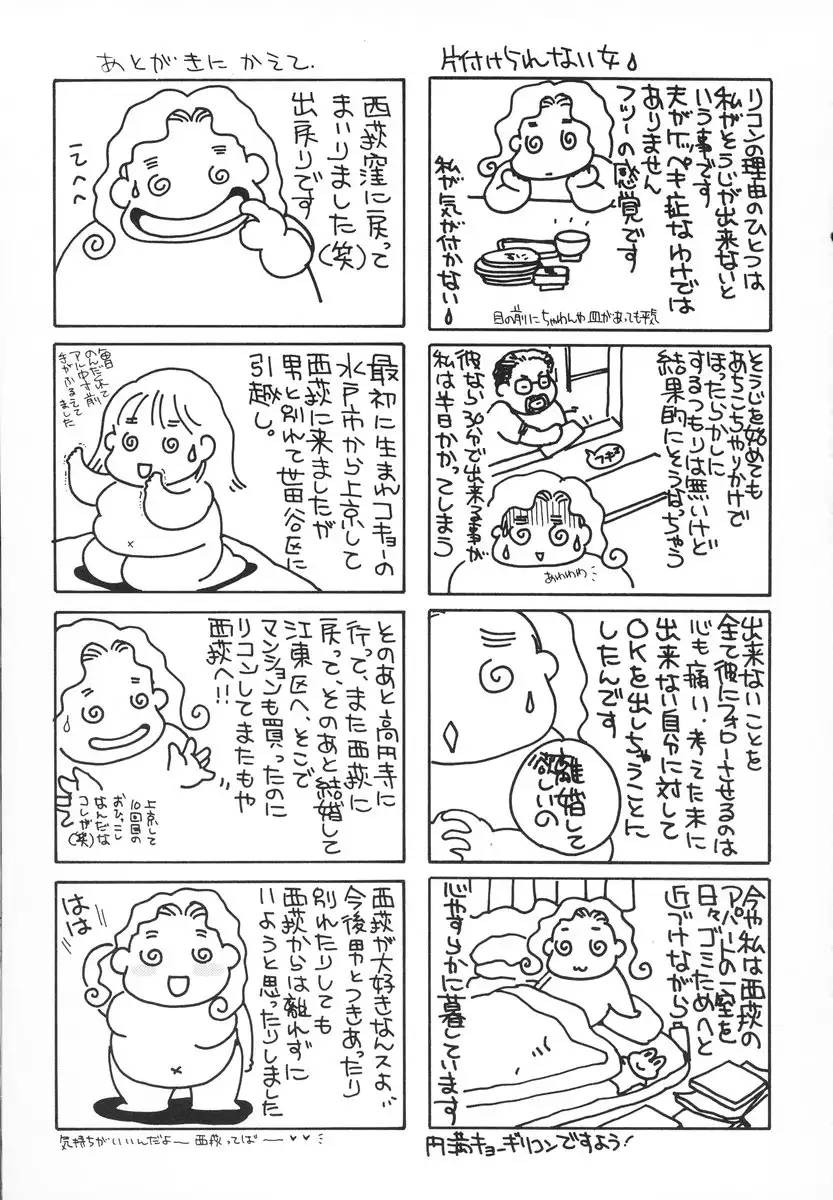 片付けられない女
リコンの理由のひとつは
私がそうじが出来ないと
いう事です
夫がケッペキ症なわけでは
ありません
フツーの感覚です
私が気が付かない
目の前にちゃわんや皿があっても平気
そうじを始めても
あちこちやりかけで
ほったらかしに
するつもりは無いけど
結果的にそうなっちゃう
彼なら30分で出来る事が
私は半日かかってしまう
フキフキ
あわわわ
出来ないことを
全て彼にフォローさせるのは
心も痛い・考えた末に
出来ない自分に対して
OKを出しちゃうことに
したんです
離婚して
欲しいの
今や私は西荻の
アパートの一室を
日々ゴミためへと
近づけながら
心やすらかに暮しています
円満キョーギリコンですよう!
あとがきに かえて.
西荻窪に戻って
まいりました(笑)
出戻りです
てへへ
最初に生まれコキョーの
水戸市から上京して
西荻に来ましたが
男と別れて世田谷区に
引越し。
胃のんだくれて
アル中寸前
手がふるえて
ました
そのあと高円寺に
行って、また西荻に
戻って、そのあと結婚して
江東区へ、そこで
マンションも買ったのに
リコンしてまたもや
西荻へ!!
上京して
10回目の
おひっこし
なんだな
コレが(笑)
西荻が大好きなんスよ
今後男とつきあったり
別れたりしても
西荻からは離れずに
いようと思ったりしました
はは
気持ちがいいんだよー 西荻ってばー